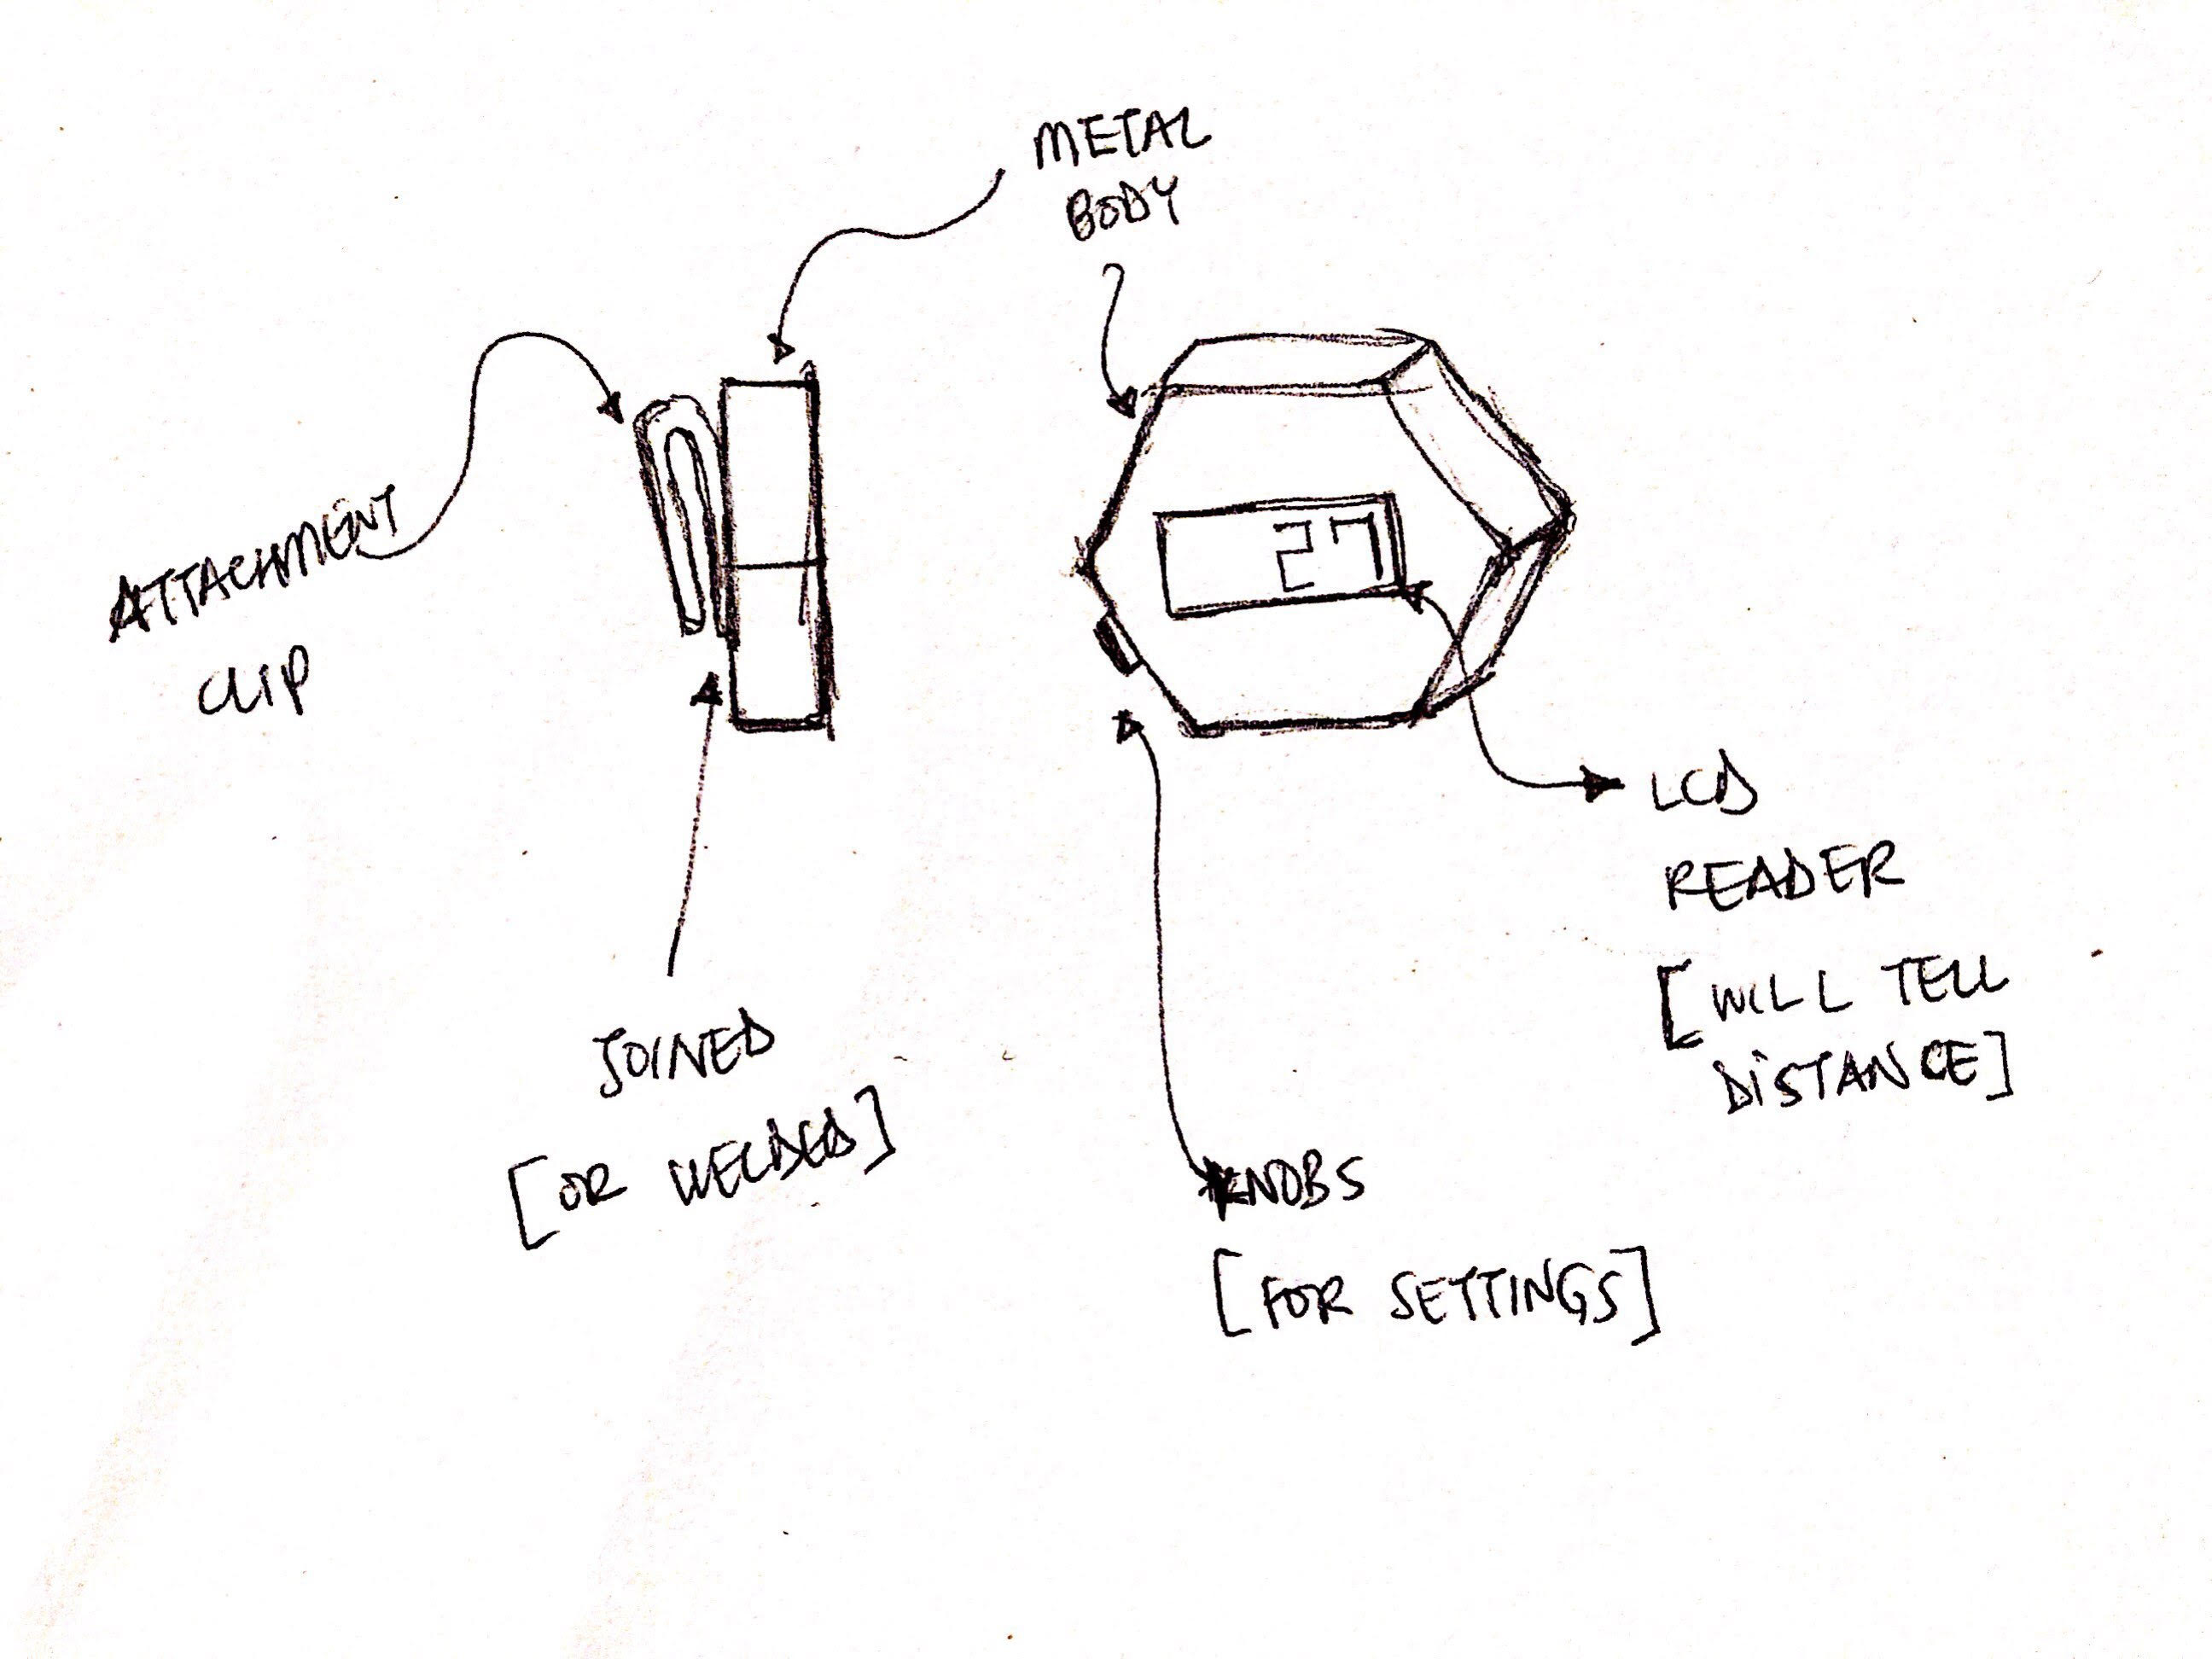 METAL
BODY
ATTACHMENT
CLIP
27
LCD
READER
[WILL TELL
DISTANCE]
JOINED
[OR WELDED]
KNOBS
[FOR SETTINGS]